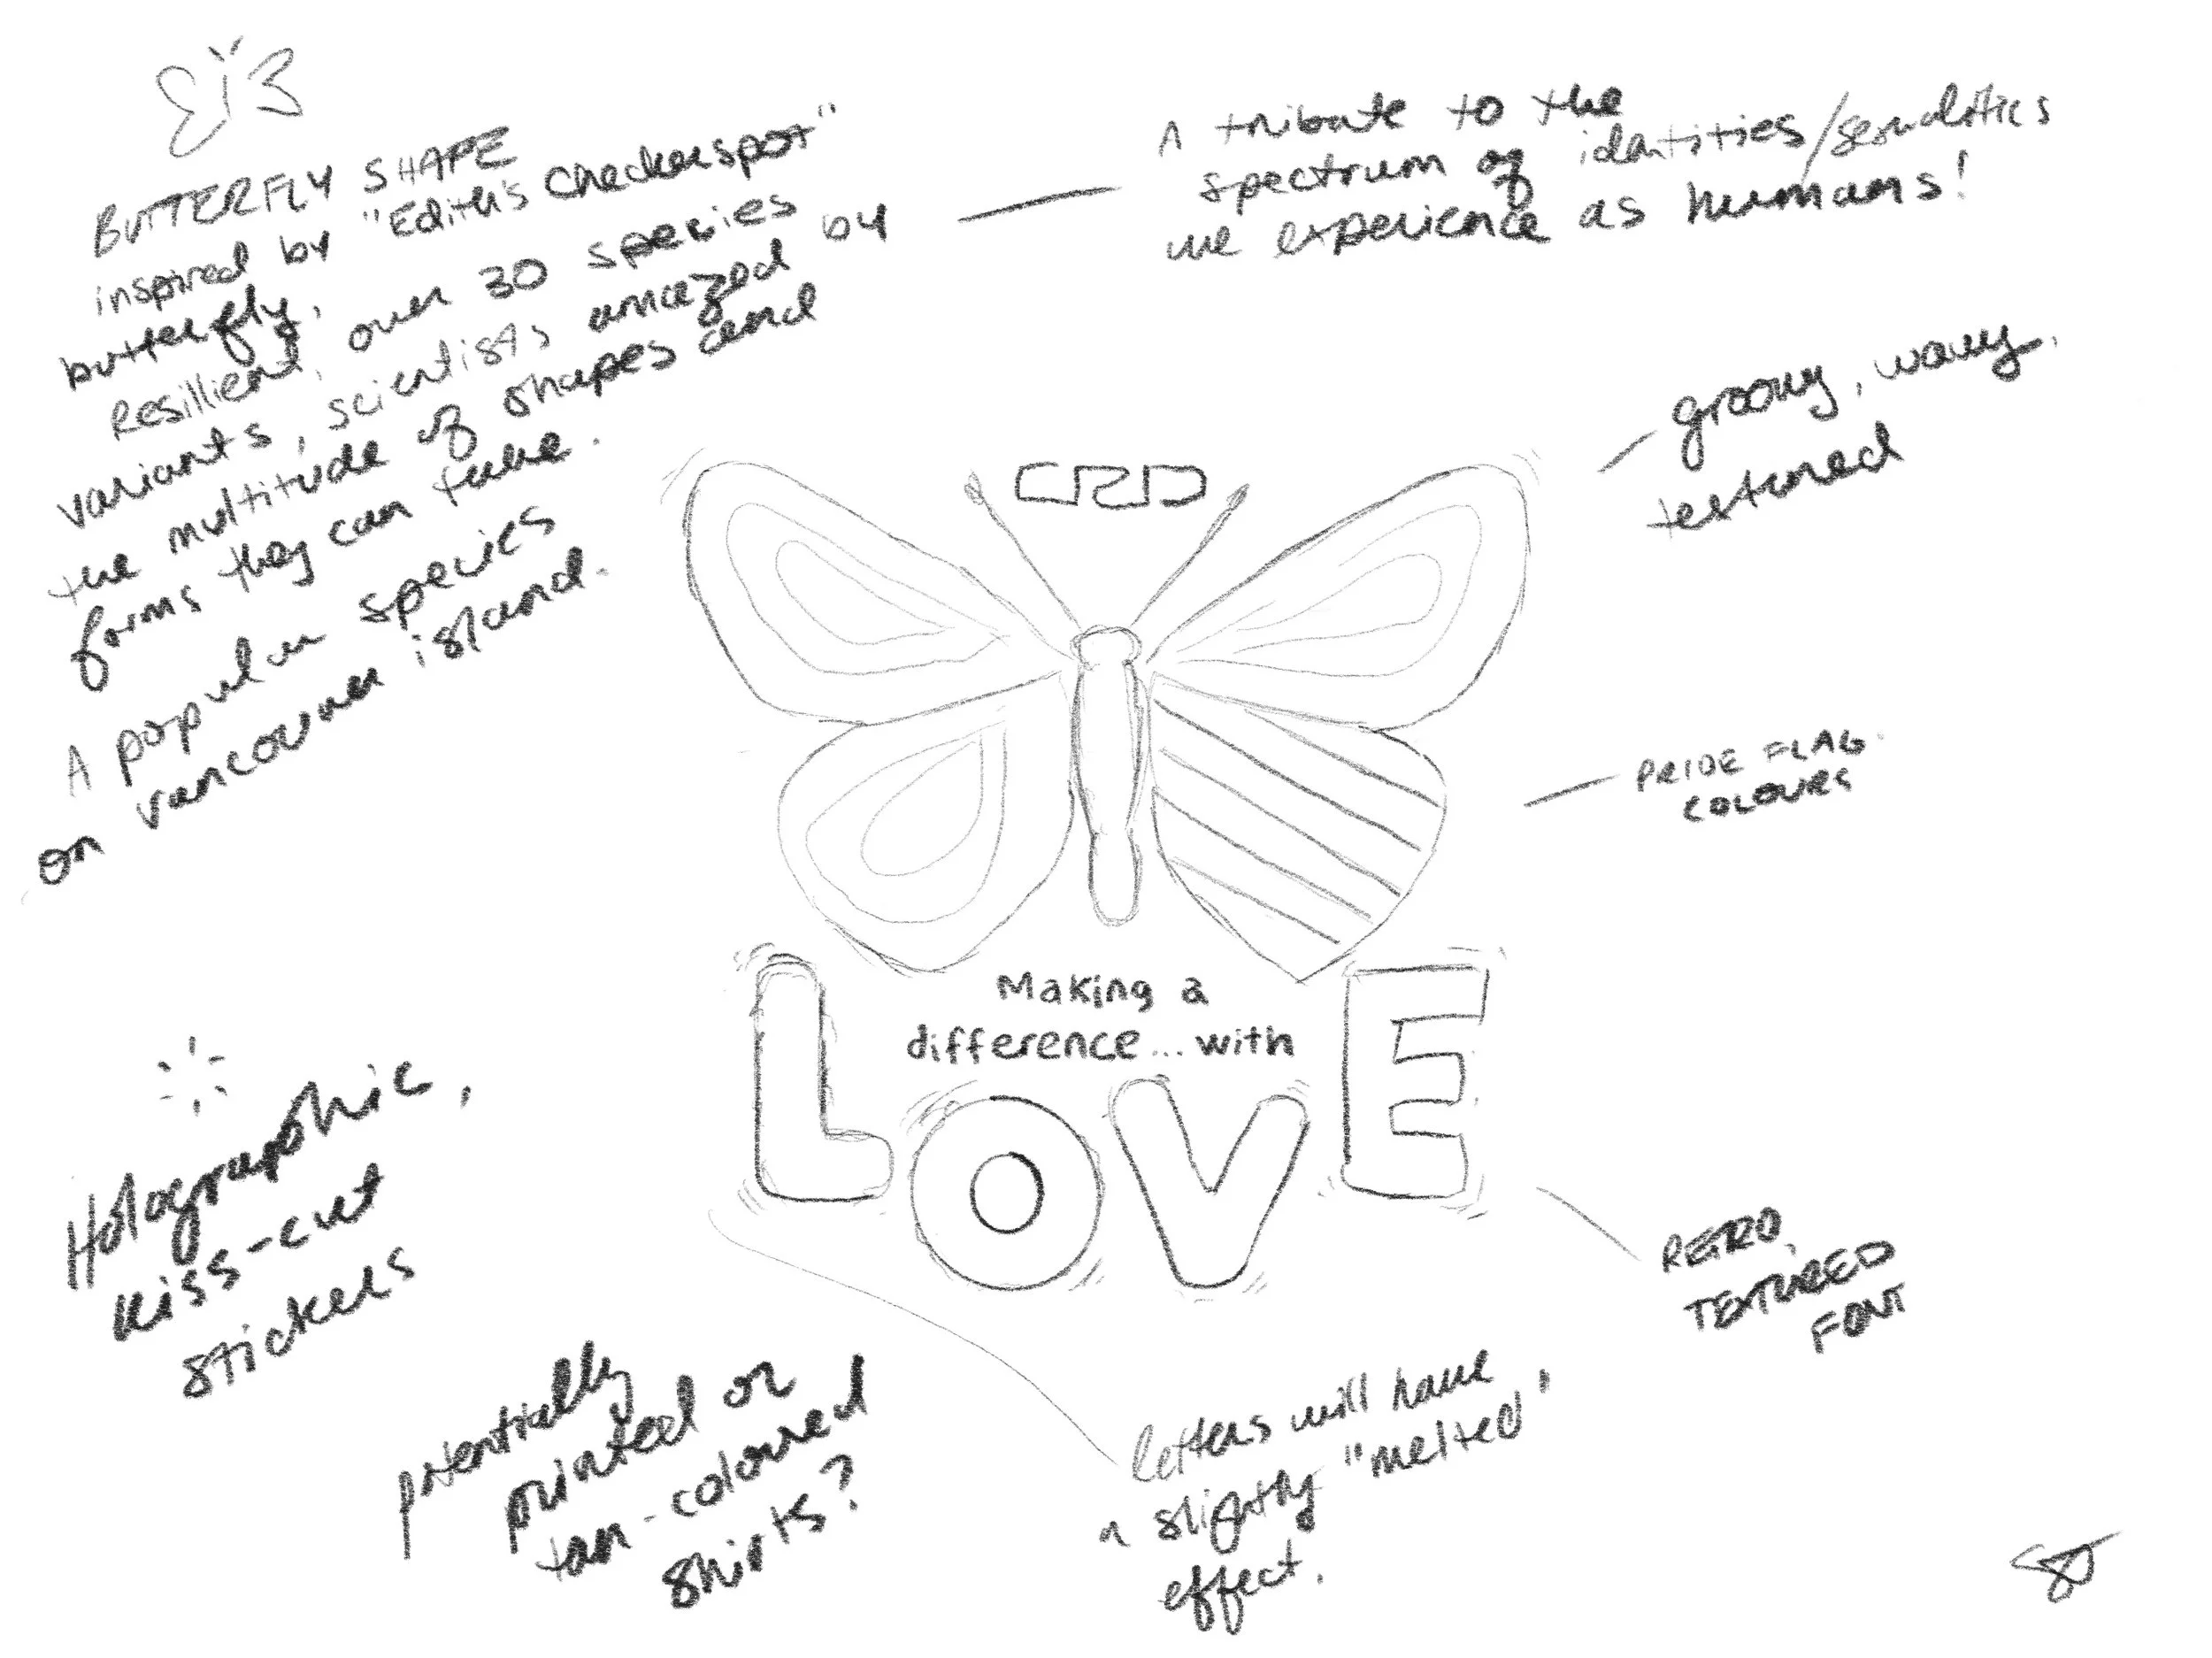 BUTTERFLY SHAPE
inspired by "Edith's Checkerspot"
butterfly.
Resillient, over 30 species
variants, scientists amazed by
the multitude of shapes and
forms they can take.
A popular species
on vancouver island.
A tribute to the
spectrum of identities/sexualities
we experience as humans!
groovy, wavy,
textured
CRD
PRIDE FLAG
COLOURS
Making a
difference... with
LOVE
Holographic,
kiss-cut
stickers
RETRO,
TEXTURED
FONT
potentially
printed on
tan-coloured
shirts?
letters will have
a slightly "melted"
effect.